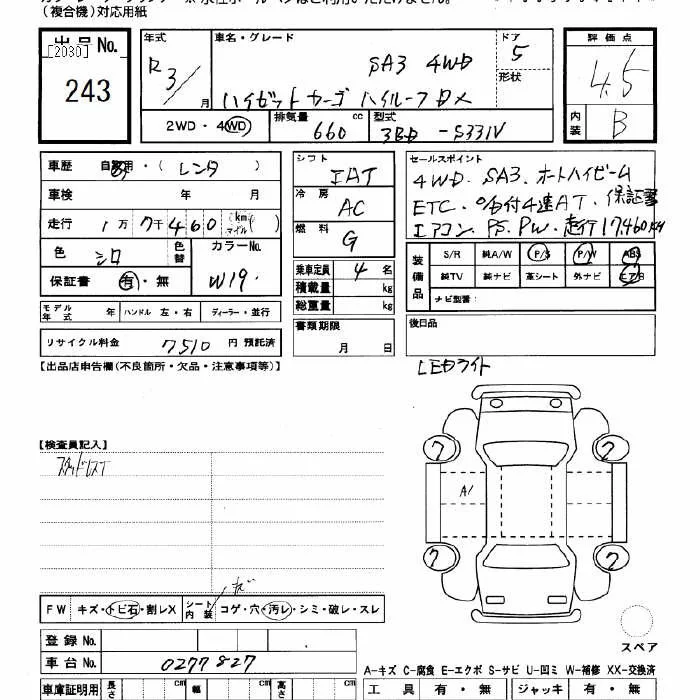 (複合機)対応用紙
出品No.
[2030]
243
年式
R3/
月
車名・グレード
SA3 4WD
ハイゼットカーゴ ハイルーフDX
ドア
5
形状
評価点
4.5
内装
B
2WD・4WD
排気量
660
cc
型式
3BD
-S331V
車歴
自家用・(レンタ)
車検
年
月
走行
1万7千460
(km マイル)
色
シロ
色替
カラーNo.
W19
保証書
有・無
シフト
IAT
冷房
AC
燃料
G
乗車定員
4
名
積載量
kg
総重量
kg
セールスポイント
4WD. SA3. オートハイビーム
ETC. 付4速AT. 保証書
エアコン. PS. PW. 走行17,460KM
装備品
S/R
純A/W
P/S
P/W
ABS
純TV
純ナビ
革シート
外ナビ
エアB
ナビ型番:
モデル年式
年
ハンドル 左・右
ディーラー・並行
書類期限
月
日
後日品
リサイクル料金
7510
円 預託済
LEDライト
【出品店申告欄(不良箇所・欠品・注意事項等)】
【検査員記入】
スタッドレスT
A1
7
7
7
7
FW
キズ・トビ石・割レX
シート内装
コゲ・穴・汚レ・シミ・破レ・スレ
スペア
登録No.
車台No.
0277827
A-キズ C-腐食 E-エクボ S-サビ U-凹ミ W-補修 XX-交換済
車庫証明用
長さ
cm
幅
cm
高さ
cm
工具
有・無
ジャッキ
有・無